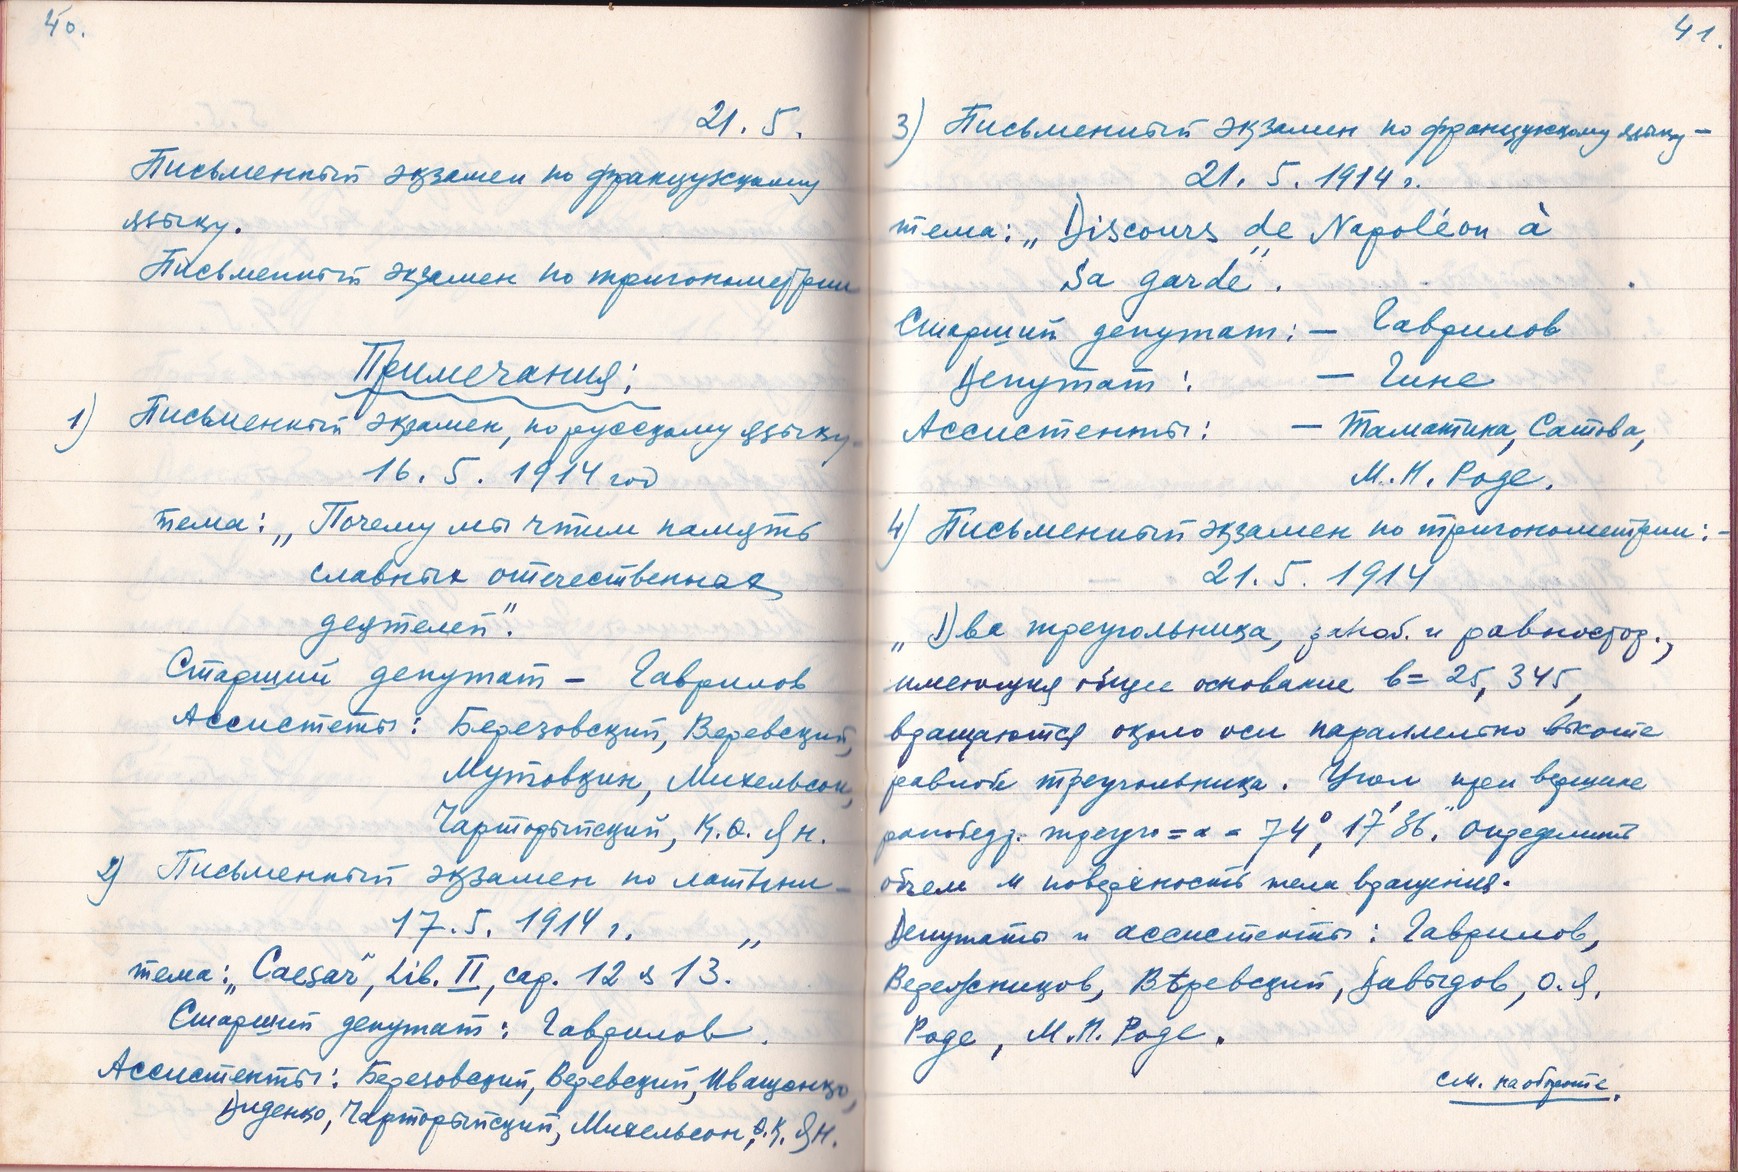 40.
21. 5.
Письменный экзамен по французскому
языку.
Письменный экзамен по тригонометрии
Примечания:
1) Письменный экзамен, по русскому языку –
16. 5. 1914 год
тема: „Почему мы чтим память
славных отечественных
деятелей".
Старший депутат – Гаврилов
Ассистеты: Березовский, Веревский,
Мутовкин, Михельсон,
Чарторыйский, К.О. Ян.
2) Письменный экзамен по латыни –
17. 5. 1914 г.
тема: „Caesar", Lib. II, cap. 12 и 13."
Старший депутат: Гаврилов.
Ассистенты: Березовский, Веревский, Иващенко,
Диденко, Чарторыйский, Михельсон, О.К. Ян.
41.
3) Письменный экзамен по французскому языку –
21. 5. 1914 г.
тема: „Discours de Napoléon à
Sa garde".
Старший депутат: – Гаврилов
Депутат: – Гине
Ассистенты: – Таматина, Сатова,
М.П. Роде.
4) Письменный экзамен по тригонометрии: –
21. 5. 1914
„Два треугольника, равноб. и равностор.,
имеющия общее основание b = 25,345,
вращаются около оси параллельно высоте
равноб треугольника. Угол при вершине
равнобедр. треуг = α = 74°, 17' 36". Определить
объем и поверхность тела вращения.
Депутаты и ассистенты: Гаврилов,
Веревский, Давыдов, О.Я.
Роде, М.П. Роде.
см. на обороте.